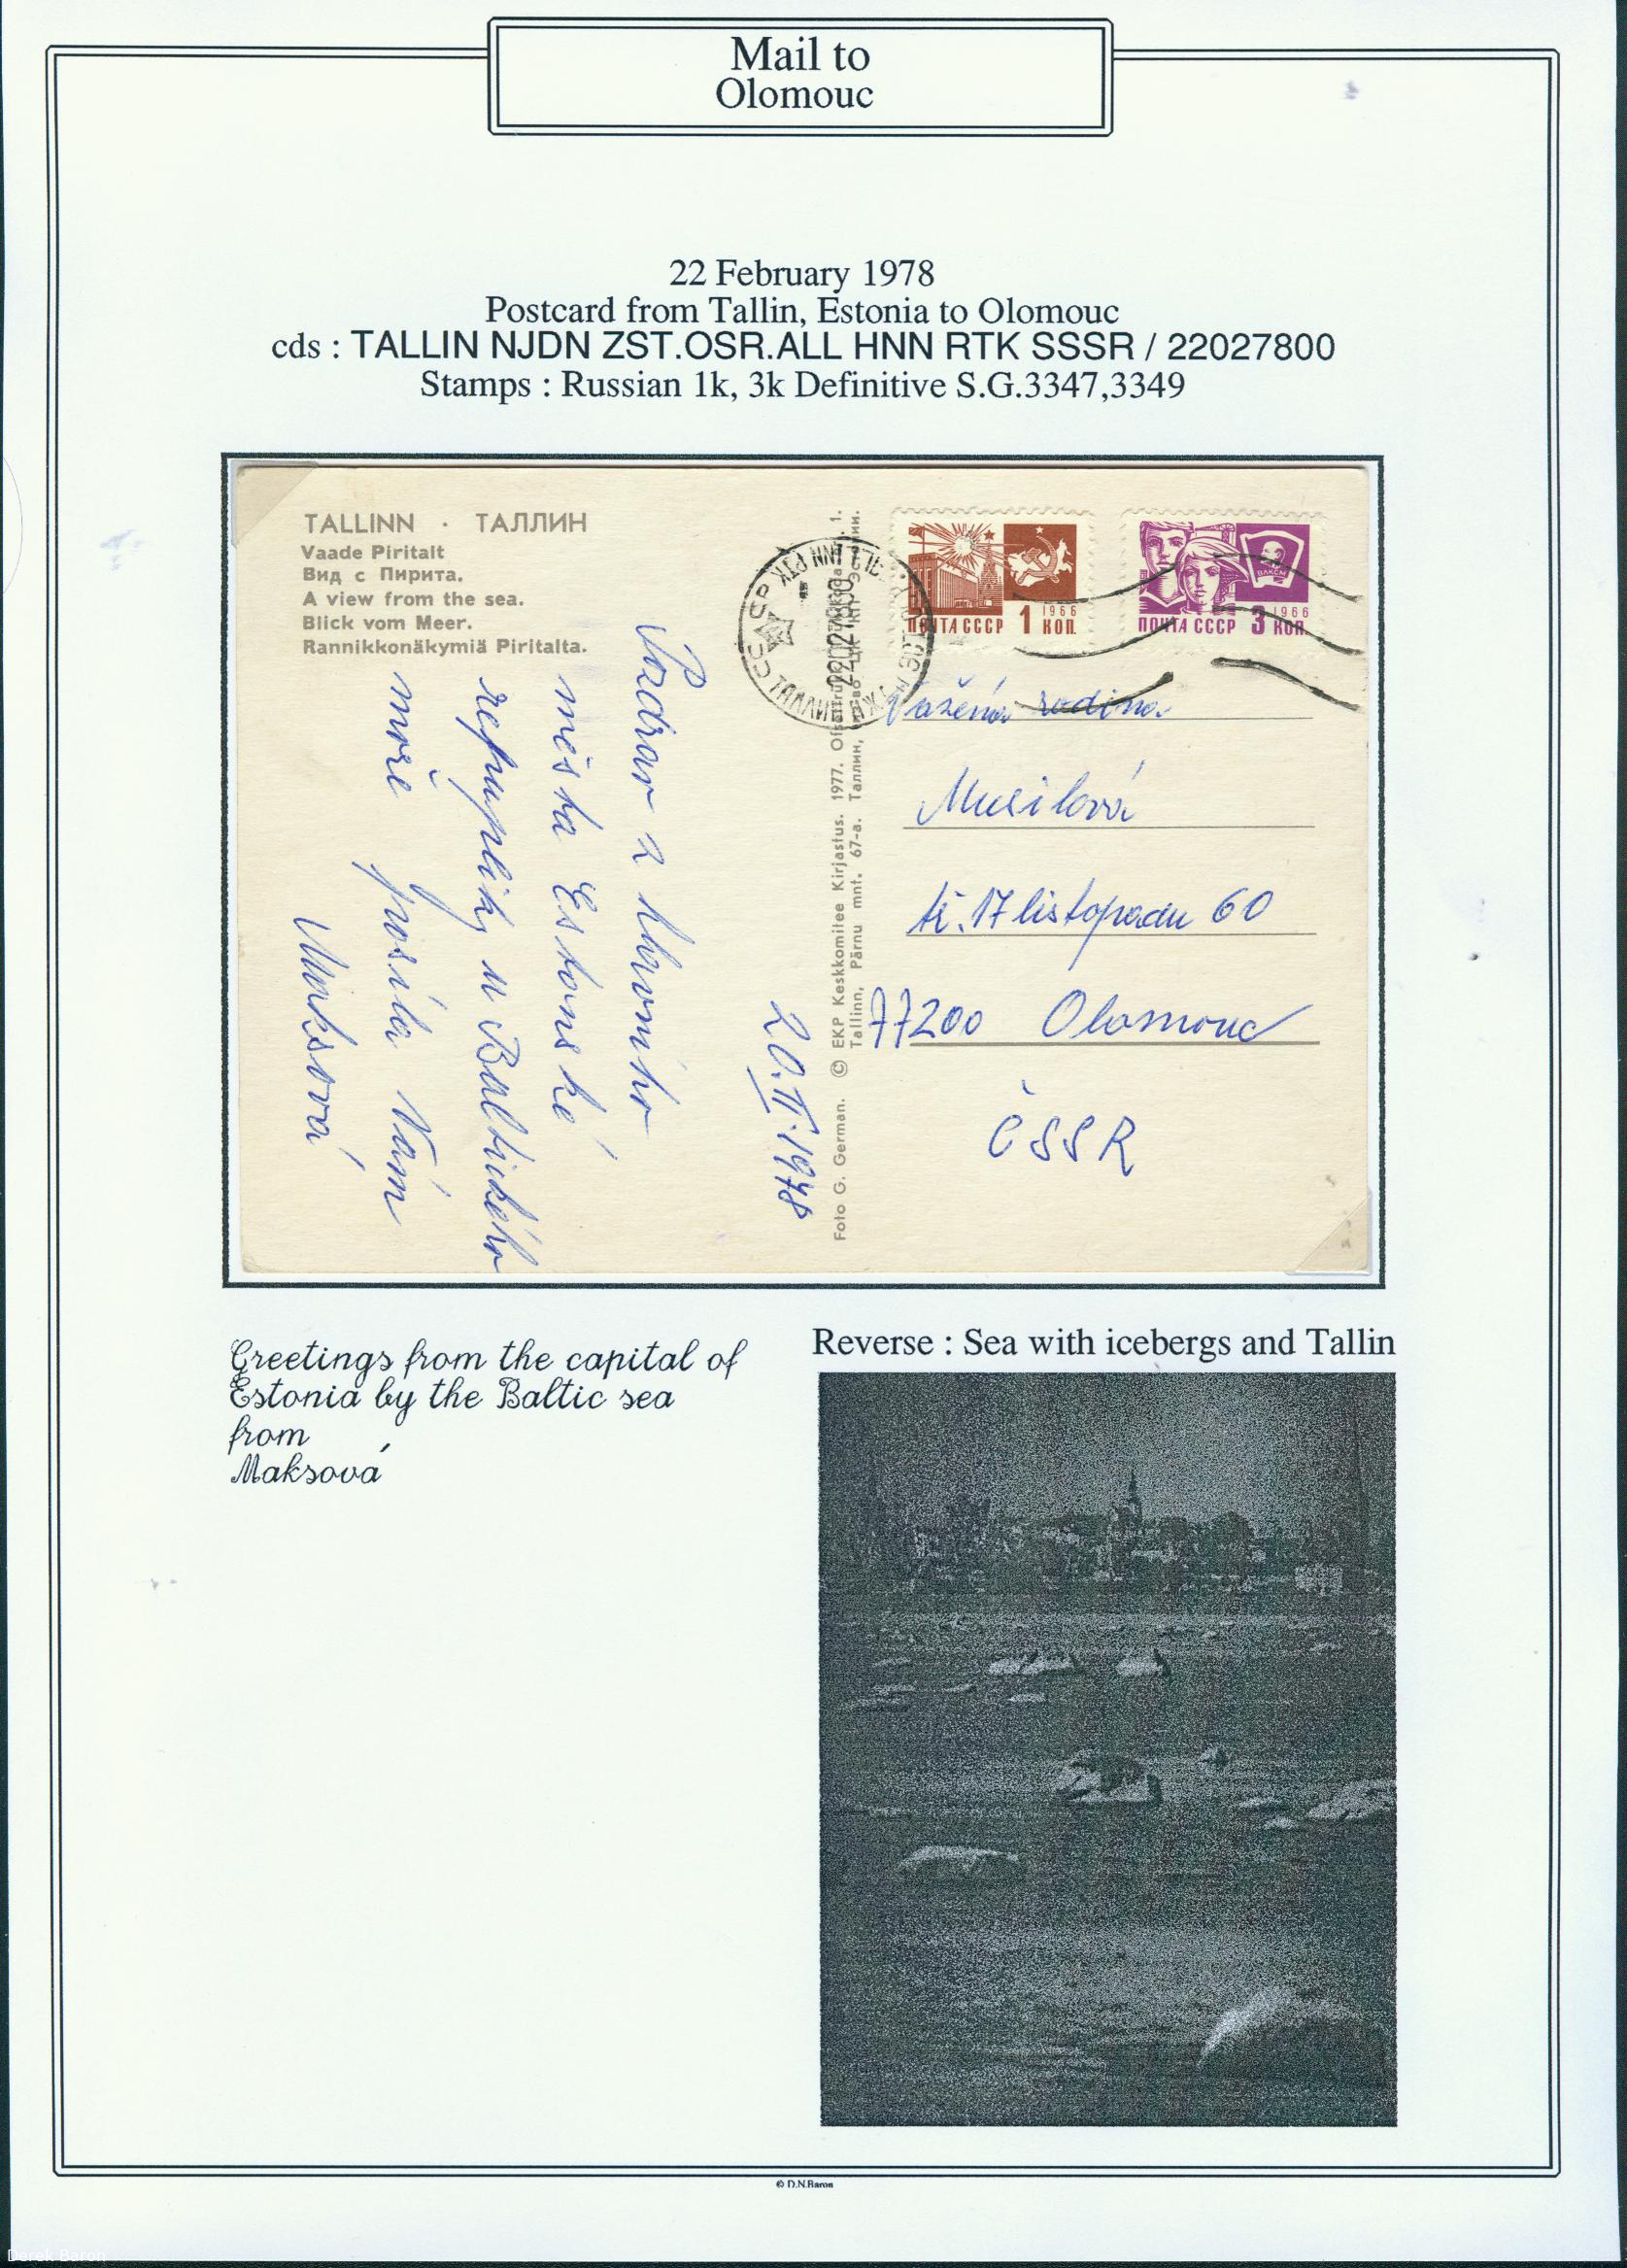 Mail to
Olomouc
22 February 1978
Postcard from Tallin, Estonia to Olomouc
cds : TALLIN NJDN ZST.OSR.ALL HNN RTK SSSR / 22027800
Stamps : Russian 1k, 3k Definitive S.G.3347,3349
TALLINN · ТАЛЛИН
Vaade Piritalt
Вид с Пирита.
A view from the sea.
Blick vom Meer.
Rannikkonäkymiä Piritalta.
Pozdrav z hlavního
města Estonské
republiky u Baltického
moře posílá Vám
Maksová
20.II.1978
Foto G. German. © EKP Keskkomitee Kirjastus. 1977.
Tallinn, Pärnu mnt. 67-a. Таллин,
СССР ТАЛЛИН
22027800
1966
ПОЧТА СССР 1 КОП.
ВЛКСМ
1966
ПОЧТА СССР 3 КОП.
Vážená rodina
Musilová
tř. 17 listopadu 60
77200 Olomouc
ČSSR
Greetings from the capital of
Estonia by the Baltic sea
from
Maksová
Reverse : Sea with icebergs and Tallin
© D.N.Baron
Derek Baron